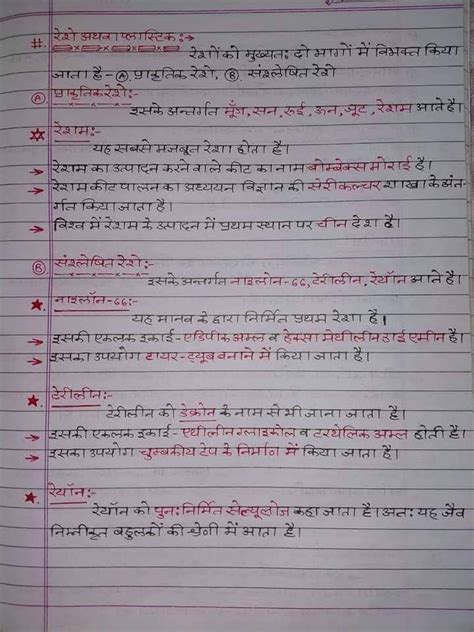 # रेशे अथवा प्लास्टिक:→
रेशों को मुख्यत: दो भागों में विभक्त किया
जाता है - Ⓐ प्राकृतिक रेशे, Ⓑ. संश्लेषित रेशे
Ⓐ प्राकृतिक रेशे:-
इसके अन्तर्गत मूँग, सन, रुई, ऊन, जूट, रेशम आते हैं।
☆ रेशम:-
यह सबसे मजबूत रेशा होता है।
→ रेशम का उत्पादन करने वाले कीट का नाम बोम्बेक्स मोराई है।
→ रेशम कीट पालन का अध्ययन विज्ञान की सेरीकल्चर शाखा के अंत-
र्गत किया जाता है।
→ विश्व में रेशम के उत्पादन में प्रथम स्थान पर चीन देश है।
Ⓑ संश्लेषित रेशे:-
इसके अन्तर्गत नाइलोन-66, टेरीलीन, रेयॉन आते हैं।
★ नाइलॉन-66:-
यह मानव के द्वारा निर्मित प्रथम रेशा है।
→ इसकी एकलक इकाई - एडिपीक अम्ल व हेक्सा मेथीलीन डाई एमीन है।
→ इसका उपयोग टायर-ट्यूब बनाने में किया जाता है।
★ टेरीलीन:-
टेरीलीन को डेक्रोन के नाम से भी जाना जाता है।
→ इसकी एकलक इकाई - एथीलीन ग्लाइकोल व टरथेलिक अम्ल होती है।
→ इसका उपयोग चुम्बकीय टेप के निर्माण में किया जाता है।
★ रेयॉन:-
रेयॉन को पुन: निर्मित सेल्यूलोज कहा जाता है। अत: यह जैव
निम्नीकृत बहुलकों की श्रेणी में आता है।